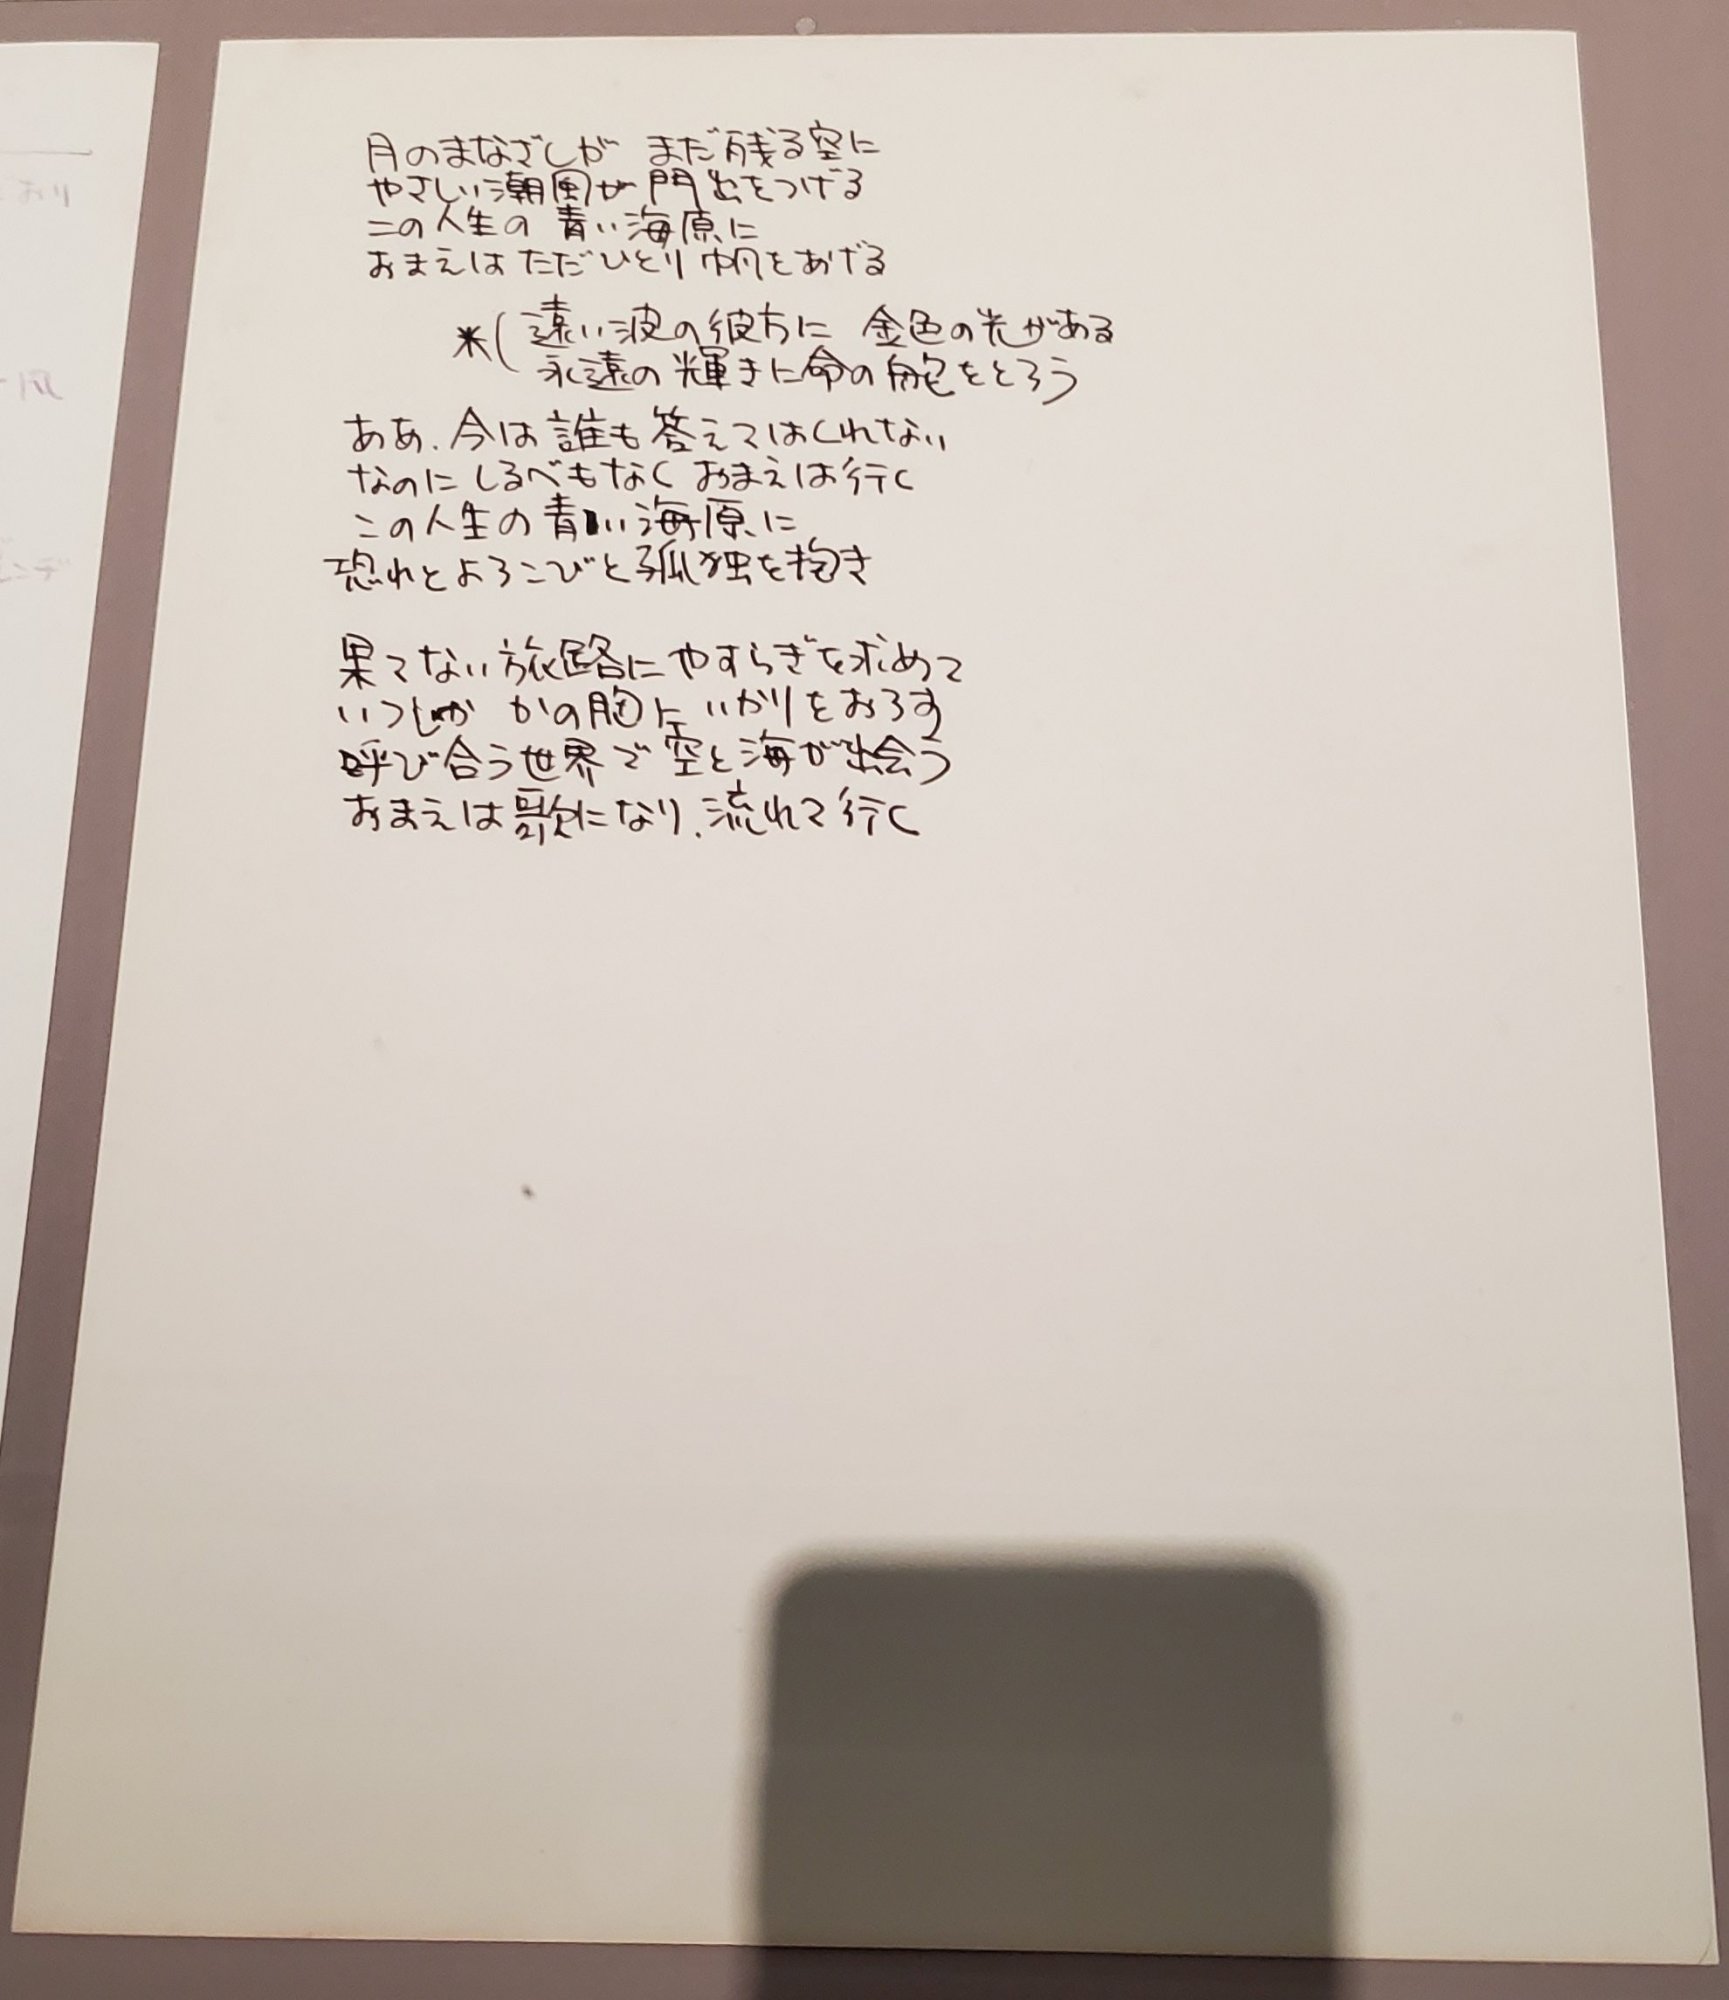 月のまなざしが まだ残る空に
やさしい潮風が門出をつげる
この人生の 青い海原に
おまえは ただひとり 帆をあげる
*( 遠い波の彼方に 金色の光がある
永遠の輝きに命の舵をとろう
ああ、今は誰も答えてはくれない
なのにしるべもなく おまえは行く
この人生の青い海原に
恐れとよろこびと孤独を抱き
果てない旅路にやすらぎを求めて
いつしか かの胸に いかりをおろす
呼び合う世界で空と海が出会う
おまえは歌になり、流れて行く